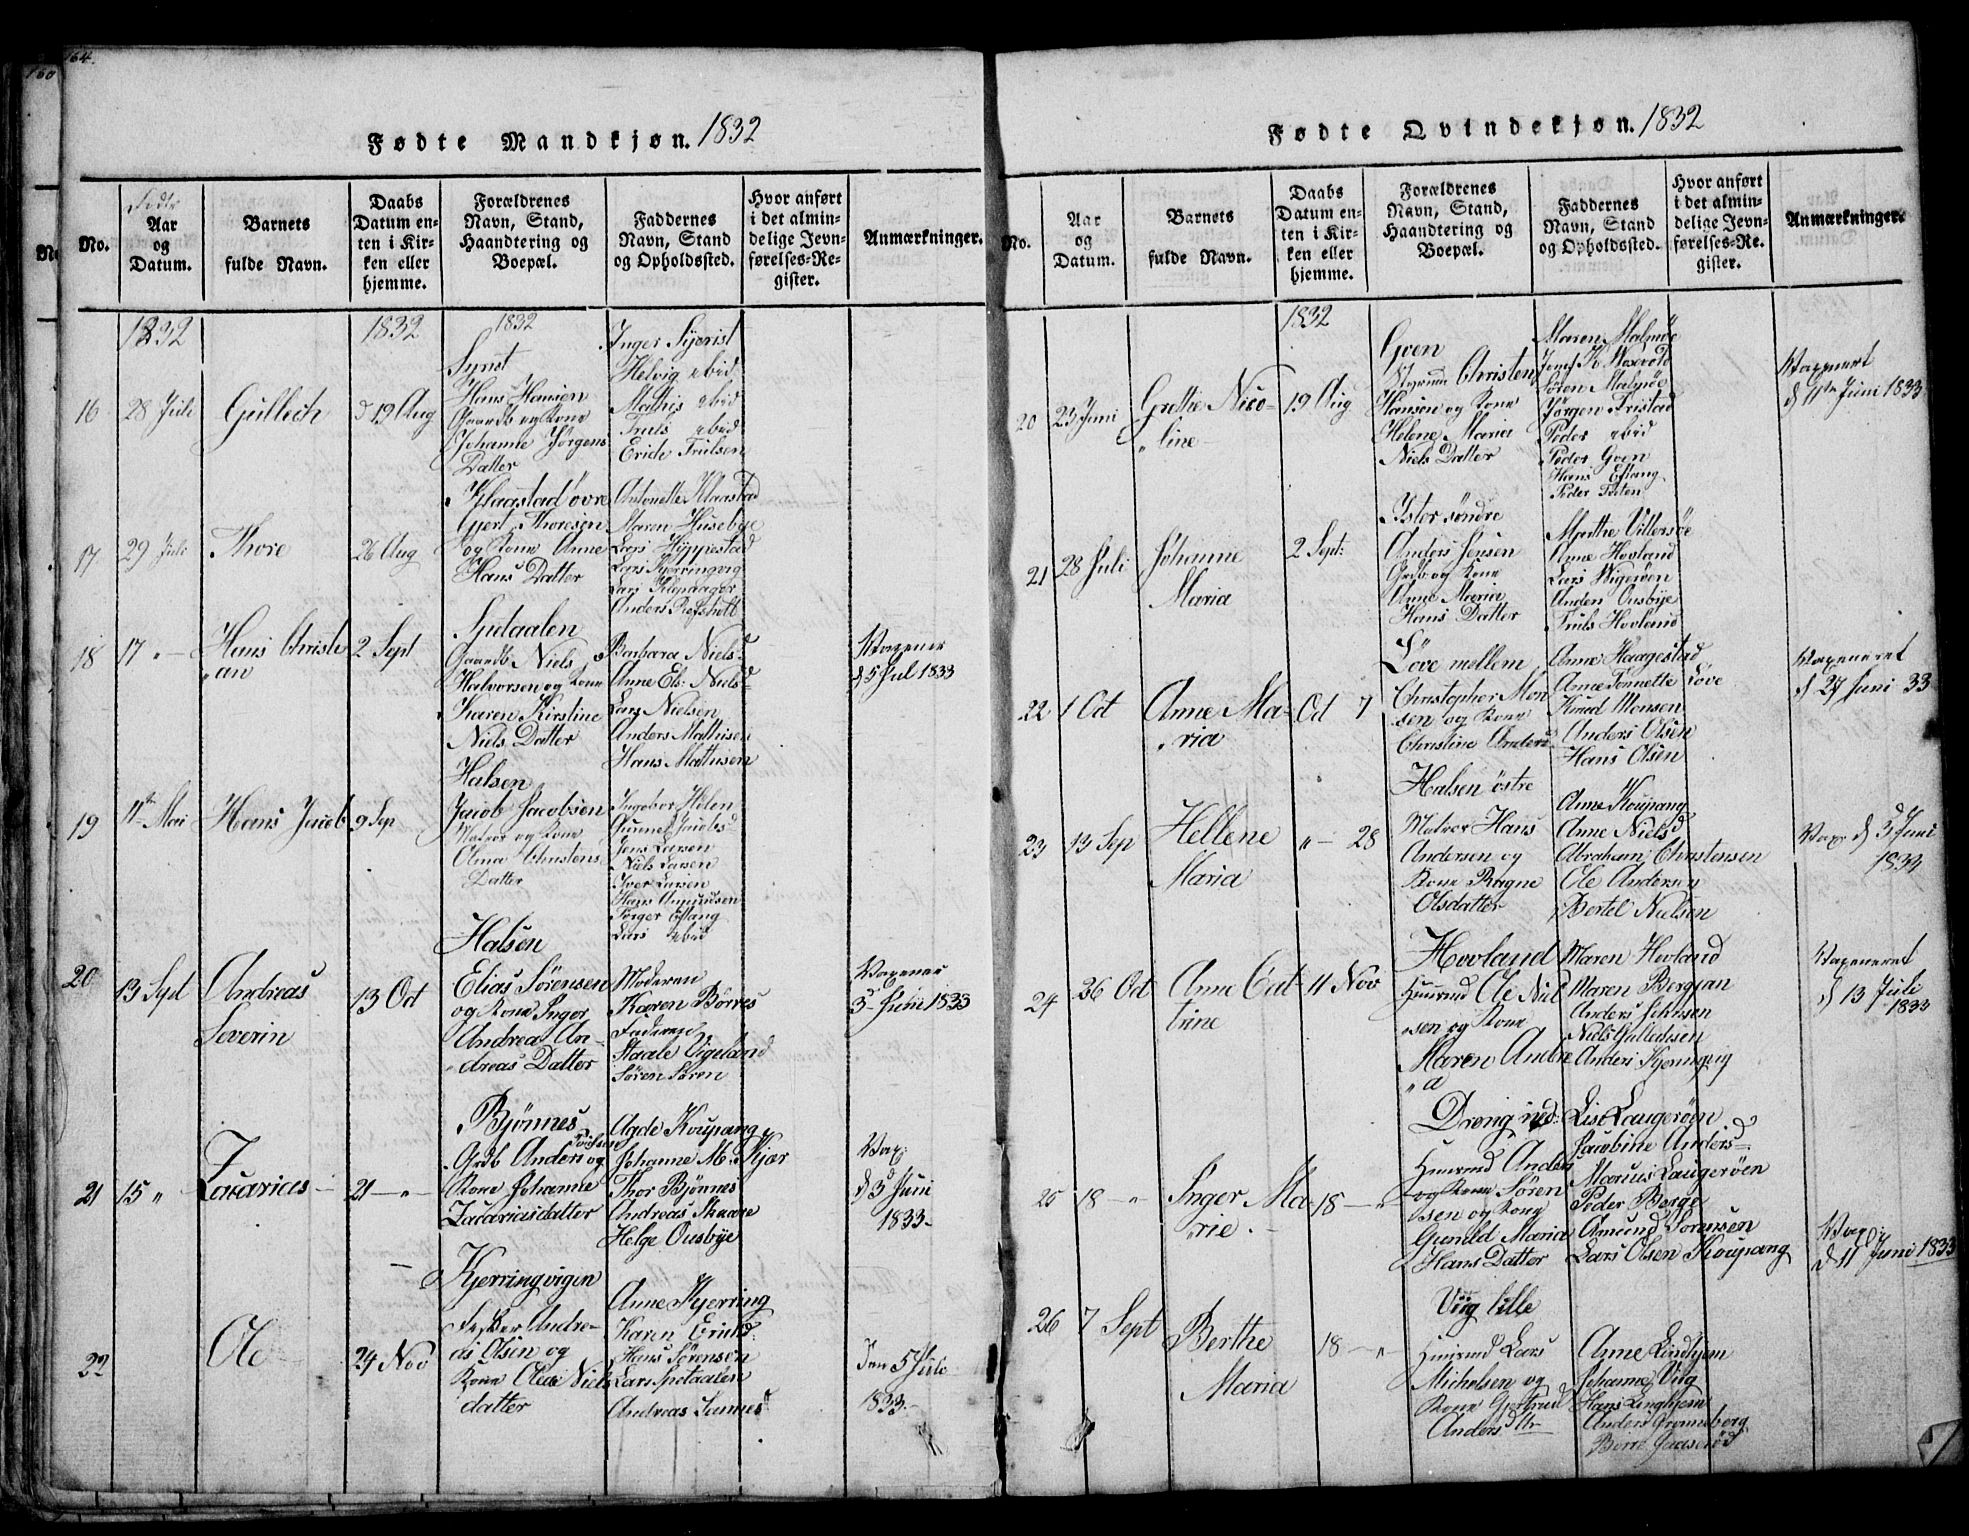 164.
160
Fødte Mandkjøn. 1832
Fødte
No.
Aar
og
Datum.
Barnets
fulde Navn.
Daabs
Datum en-
ten i Kir-
ken eller
hjemme.
Forældrenes
Navn, Stand,
Haandtering og
Boepæl.
Faddernes
Navn, Stand
og Opholdssted.
Hvor anført
i det almin-
delige Jevn-
førelses-Re-
gister.
Anmærkninger.
1832
1832
1832
16
28 Juli
Gullich
d 19 Aug
Hans Hansen
Gaardb og Kone
Johanne Jørgens
Datter
Helvig ibid
Mathis ibid
Truls ibid
Erich Trulsen
17
29 Juli
Thore
26 Aug
Klaastad øvre
Gjert Thoresen
og Kone Anne
Hans Datter
Antonette Klaastad
Maren Husebye
Lars Hyppestad
Lars Kjerringvig
Lars Klepaager
Anders
18
17 "
Hans Christi
"an
2 Sept
Spetaalen
Gaardb Niels
Halvorsen og Kone
Karen Kirstine
Niels Datter
Barbara Nielsd
Anne El: Nielsd
Lars Nielsen
Anders Mathisen
Hans Mathisen
d 5 Jul 1833
19
11te Mai
Hans Jacob
9 Sep
Halsen
Jacob Jacobsen
Matros og Kone
Christens
Datter
Ingebor Helen
Jens Larsen
Niels Larsen
Iver Larsen
Hans Amundsen
Eftang
Lars ibid
20
13 Sept
Andreas
Severin
13 Oct
Halsen
Elias Sørensen
og Kone Inger
Andrea An-
"dreas Datter
Moderen
Karen Børres
Faderen
Staale Vigeland
Søren Søren
3d Juni 1833
21
15 "
Zacarias
21 - " -
Bjønnes
Grdb Anders
og
Kone Johanne
Zacariasdatter
Agde Koupang
Johanne M. Kjær
Thor Bjønnes
Andreas Skaare
Helge Ousbye
Vax:
d 3 Juni
1833-
22
Ole
24 Nov
Kjerringvigen
Andre-
as Olsen og
Kone Olea Niels
datter
Anne Kjerring
Karen
Hans Sørensen
Lars Spetaalen
Andreas Sannes
Den 5 Juli
1833.-
Fødte Qvindekjøn. 1832
No.
Aar
og
Datum.
Barnets
fulde Navn.
Daabs
Datum en-
ten i Kir-
ken eller
hjemme.
Forældrenes
Navn, Stand,
Haandtering og
Boepæl.
Faddernes
Navn, Stand
og Opholdssted.
Hvor anført
i det almin-
delige Jevn-
førelses-Re-
gister.
Anmærkninger.
1832
20
23 Juni
Grethe Nico-
"line-
19 Aug
Gven
Christen
Hansen og Kone
Helene Maria
Niels Datter
Maren Malmøe
Søren Malmøe
Jørgen Tristad
Peder ibid
Peder Gven
Hans Eftang
Peder
d 11te Juni 1833
21
28 Juli
Johanne
Maria
2 Sept:
Ister søndre
Anders Jensen
Grdb og Kone
Anne Maria
Hans Datter
Marthe Villersøe
Anne Hovland
Lars
Anders Ousbye
Truls Hovland
22
1 Oct
Anne Ma-
"ria
Oct 7
Løve mellem
Christopher Mon
sen og Kone
Christine Anders
Anne Haagestad
Anne Tonnette Løve
Knud Monsen
Anders Olsen
Hans Olsen
Vaxeneret
d 27 Juni 33
23
13 Sep
Hellene
Maria
" - 28
Halsen østre
Matros Hans
Andersen og
Kone Ragne
Olsdatter
Anne Koupang
Anne Nielsd
Abraham Christensen
Ole Andersen
Bertel Nielsen
Vax: d 3 Juni
1834
24
26 Oct
Anne Cat-
trine
11 Nov
Hovland
Huusmd Ole Niel
"sen og Kone
Maren Andre
"a
Maren Hovland
Maren Bergan
Anders Johnsen
Niels Gullichsen
Anders Kjerringvig
Vaxeneret
d 13 Juli
1833
25
18 - "
Inger Ma-
"rie.-
18 - "
Huusmd Anders
Søren
sen og Kone
Gunild Maria
Hans Datter
Lise Laugerøen
Jacobine Andersd
Marius Laugerøen
Peder Berge
Amund Sørensen
Lars Olsen Koupang
Vax:
d 11 Juni 1833
26
7 Sept
Berthe
Maria
18 - "
Viig lille
Huusmd Lars
Michelsen og
Kone Gjertrud
Anders Dtr
Anne Lindhjem
Johanne Viig
Hans Linghjem
Anders Grønneberg